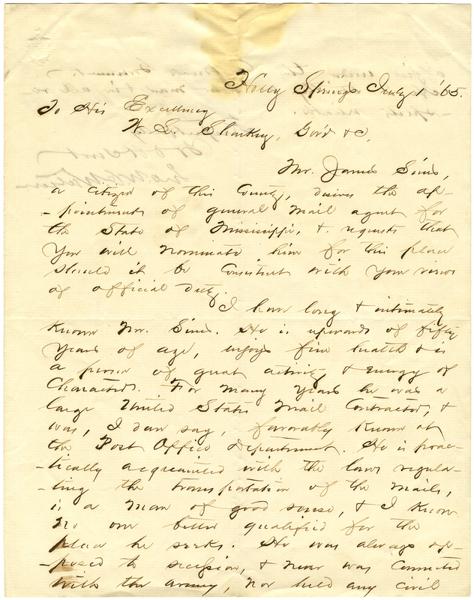 Holly Springs July 1 '65.
To His Excellency
W. L. Sharkey, Gov'r &c.
Mr. James Sims,
a citizen of this County, desires the ap-
-pointment of general Mail agent for
the State of Mississippi, & requests that
you will nominate him for this place
should it be consistent with your views
of official duty.
I have long & intimately
known Mr. Sims. He is upwards of fifty
years of age, enjoys fine health & is
a person of great activity & energy of
Character. For many years he was a
large United States Mail Contractor, &
was, I dare say, favorably known at
the Post Office Department. He is prac-
-tically acquainted with the laws regula-
-ting the transportation of the mails,
is a man of good sense, & I know
no one better qualified for the
place he seeks. He was always op-
-posed to secession, & never was connected
with the army, nor held any civil